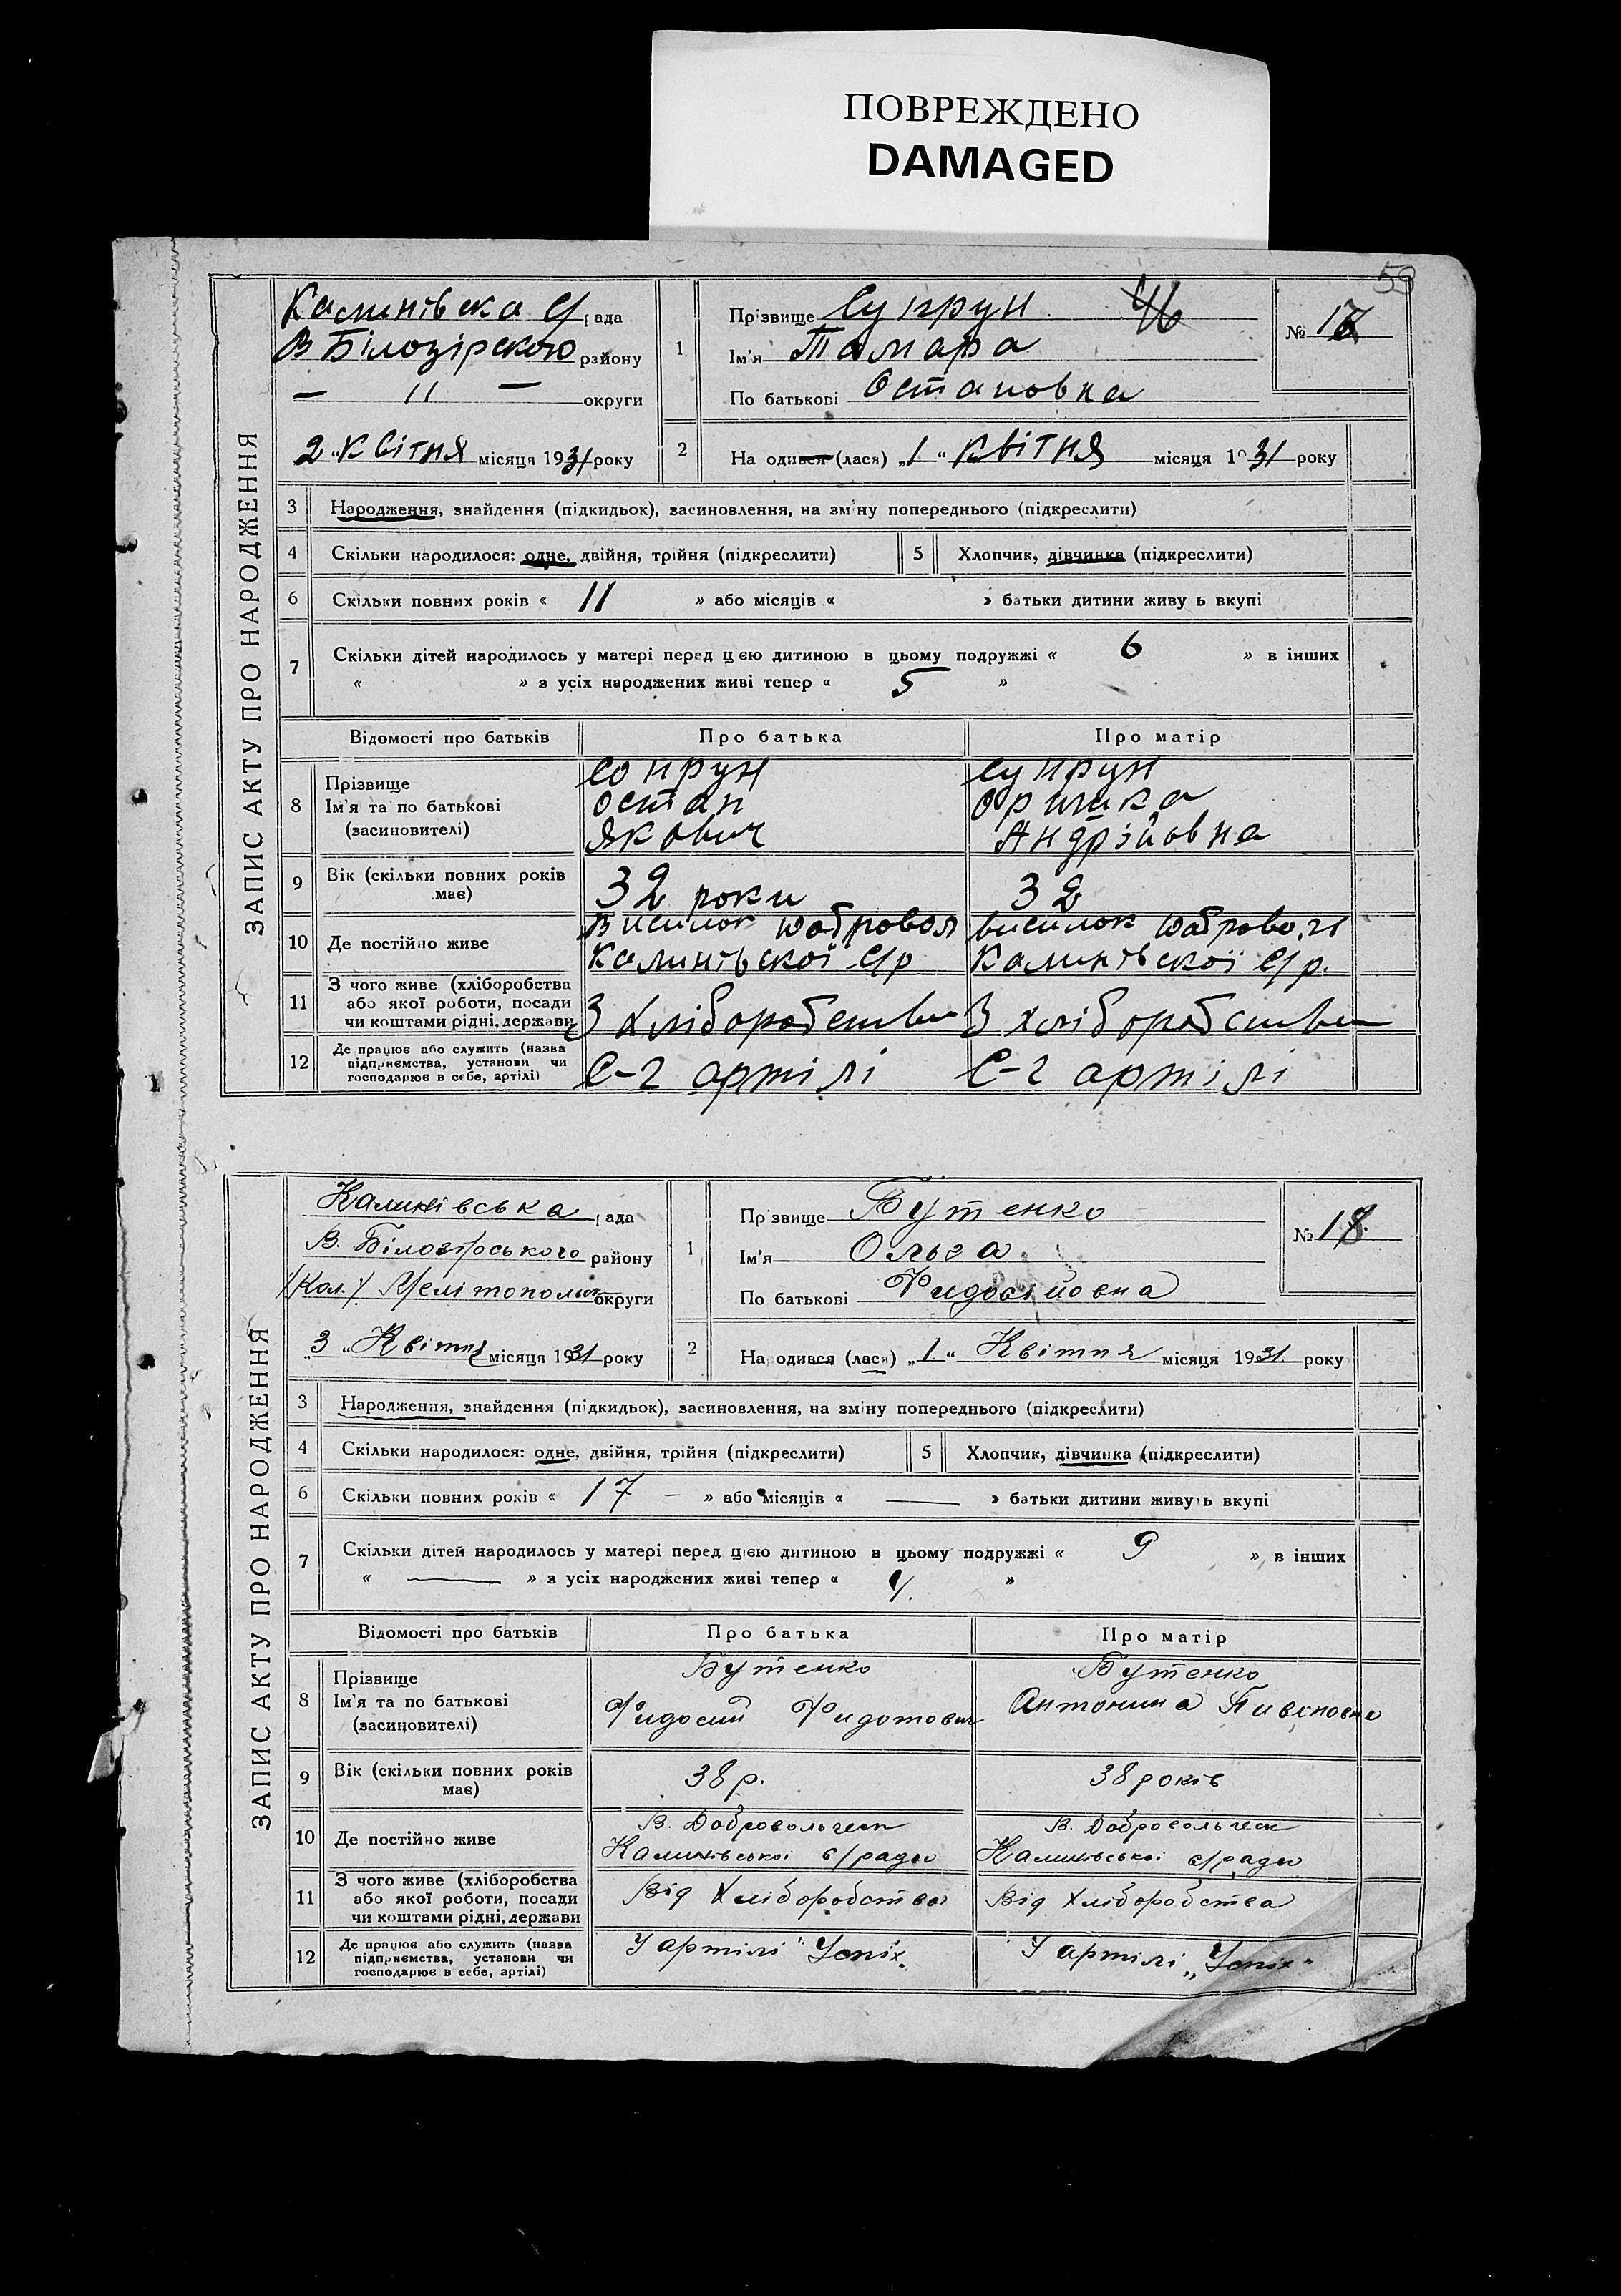 ПОВРЕЖДЕНО
DAMAGED
50
ЗАПИС АКТУ ПРО НАРОДЖЕННЯ
Калинівска С/ рада
В Білозірского району
— 11 — округи
2 " Квітня місяця 1931 року
1
Прізвище Супрун 46
Ім'я Тамара
По батькові Остаповна
№ 17
2
Народився (лася) „1" Квітня місяця 1931 року
3 Народження, знайдення (підкидьок), засиновлення, на зміну попереднього (підкреслити)
4 Скільки народилося: одне, двійня, трійня (підкреслити)
5 Хлопчик, дівчинка (підкреслити)
6 Скільки повних років « 11 » або місяців « » батьки дитини живуть вкупі
7 Скільки дітей народилось у матері перед цією дитиною в цьому подружжі « 6 » в інших
« » з усіх народжених живі тепер « 5 »
Відомості про батьків Про батька Про матір
8 Прізвище
Ім'я та по батькові
(засиновителі)
Сопрун
Остап
Якович
Супрун
Оришка
Андрійовна
9 Вік (скільки повних років має)
32 роки
32
10 Де постійно живе
Висилок
Калинівскої С/р
висилок
Калинівскої С/р.
11 З чого живе (хліборобства
або якої роботи, посади
чи коштами рідні, держави
З хліборобства
З хліборобства
12 Де працює або служить (назва
підприємства, установи чи
господарює в себе, артілі)
С-г артілі
С-г артілі
ЗАПИС АКТУ ПРО НАРОДЖЕННЯ
Калинівська рада
В. Білозірського району
/Кол./ Мелітопольск округи
„3 " Квітня місяця 1931 року
1
Прізвище Бутенко
Ім'я Ольга
По батькові Фидосійовна
№ 18
2
Народився (лася) „1." Квітня місяця 1931. року
3 Народження, знайдення (підкидьок), засиновлення, на зміну попереднього (підкреслити)
4 Скільки народилося: одне, двійня, трійня (підкреслити)
5 Хлопчик, дівчинка (підкреслити)
6 Скільки повних років « 17 — » або місяців « — » батьки дитини живуть вкупі
7 Скільки дітей народилось у матері перед цією дитиною в цьому подружжі « 9 » в інших
« — » з усіх народжених живі тепер « »
Відомості про батьків Про батька Про матір
8 Прізвище
Ім'я та по батькові
(засиновителі)
Бутенко
Фидосий Фидотович
Бутенко
Антонина
9 Вік (скільки повних років має)
38 р.
38 років
10 Де постійно живе
В. Добровольческ
Калинівської с/ради
В. Добровольческ
Калинівської с/ради
11 З чого живе (хліборобства
або якої роботи, посади
чи коштами рідні, держави
Від Хліборобства
Від Хліборобства
12 Де працює або служить (назва
підприємства, установи чи
господарює в себе, артілі)
У артілі "Успіх„
У артілі „Успіх"